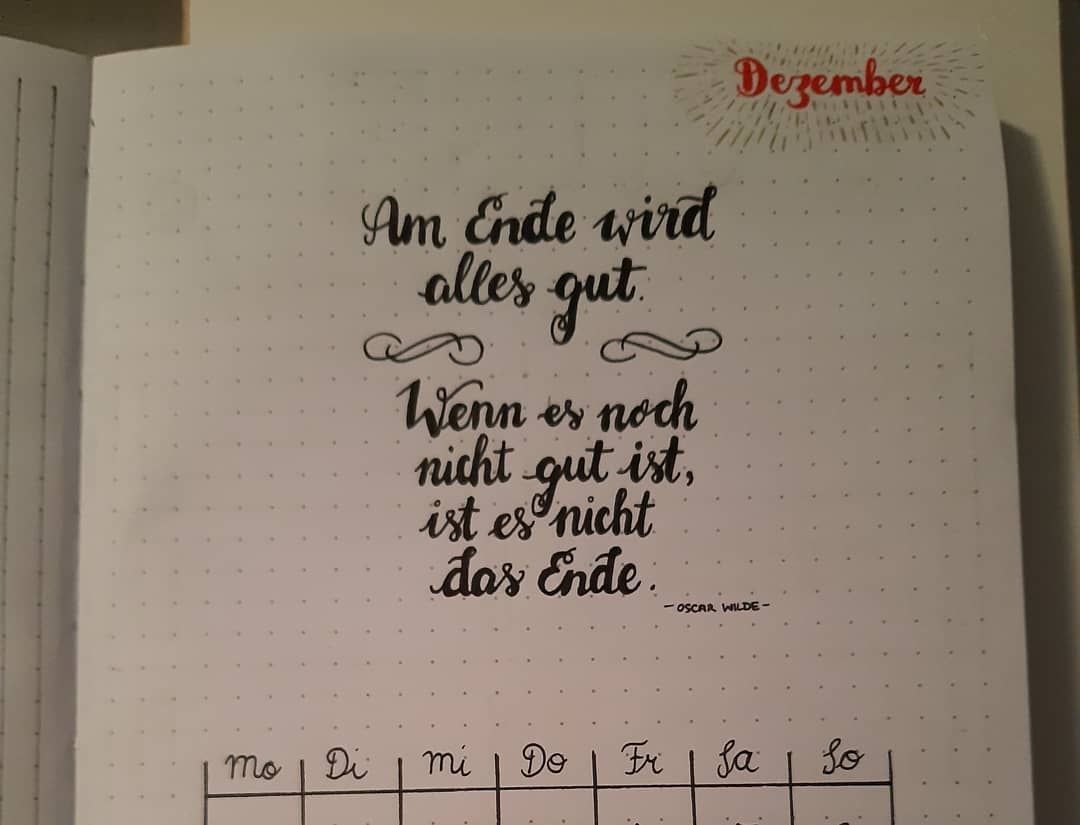 Dezember
Am Ende wird
alles gut.
Wenn es noch
nicht gut ist,
ist es nicht
das Ende.
- OSCAR WILDE -
Mo Di Mi Do Fr Sa So